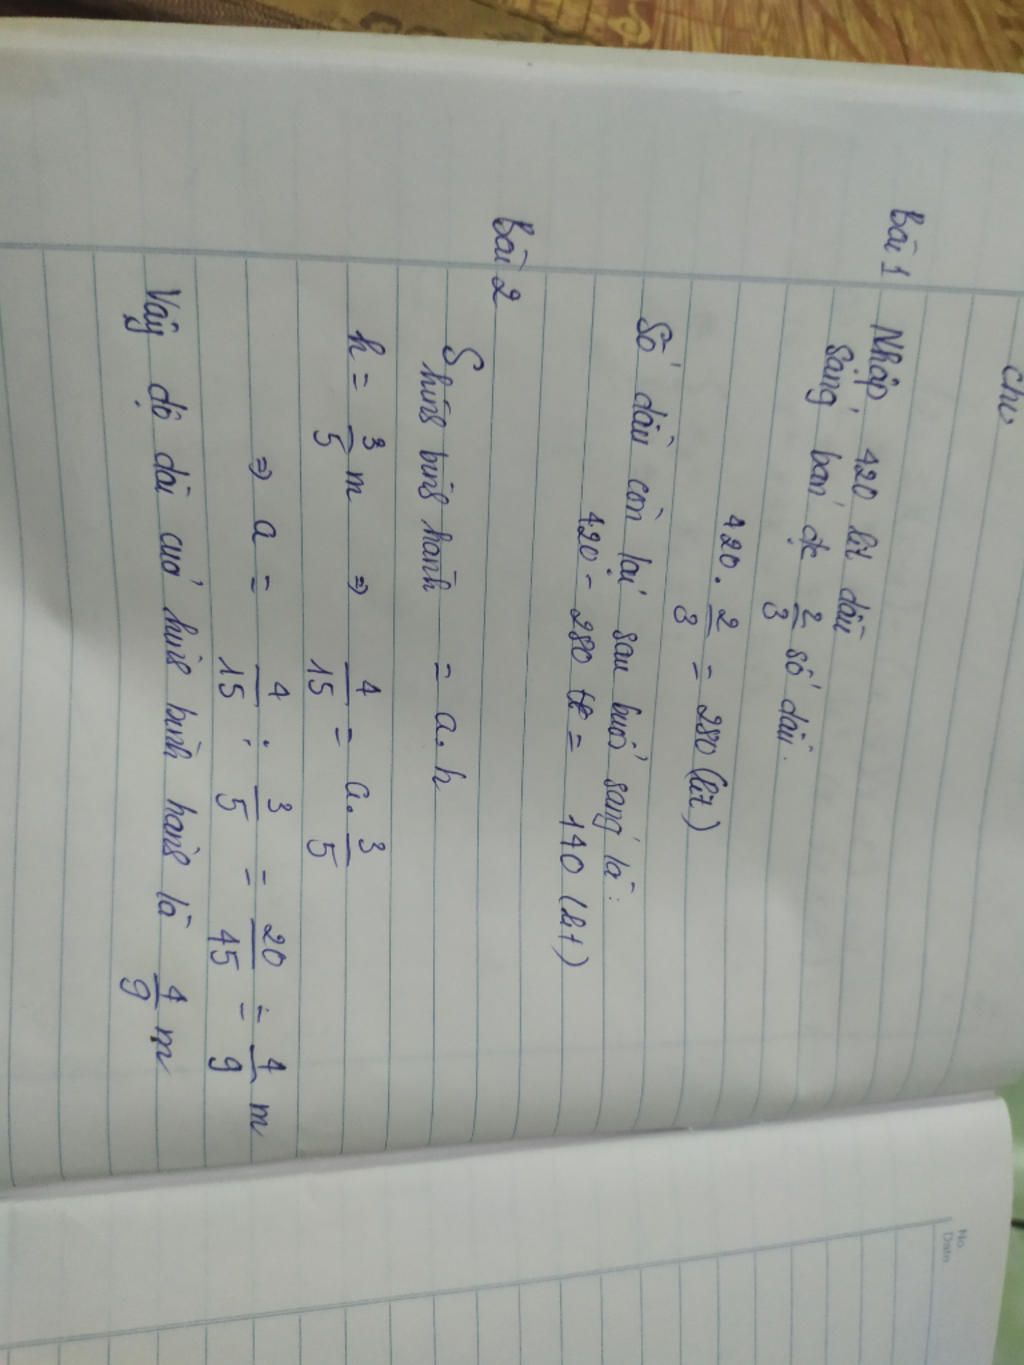 chu
Bài 1 Nhập 420 lít dầu
Sáng bán đc 2/3 số dầu.
420 . 2/3 = 280 (lít)
Số dầu còn lại sau buổi sáng là:
420 - 280 = 140 (lít)
Bài 2
S hình bình hành = a.h
h = 3/5 m ⇒ 4/15 = a. 3/5
⇒ a = 4/15 : 3/5 = 20/45 = 4/9 m
Vậy độ dài của hình bình hành là 4/9 m
No
Date